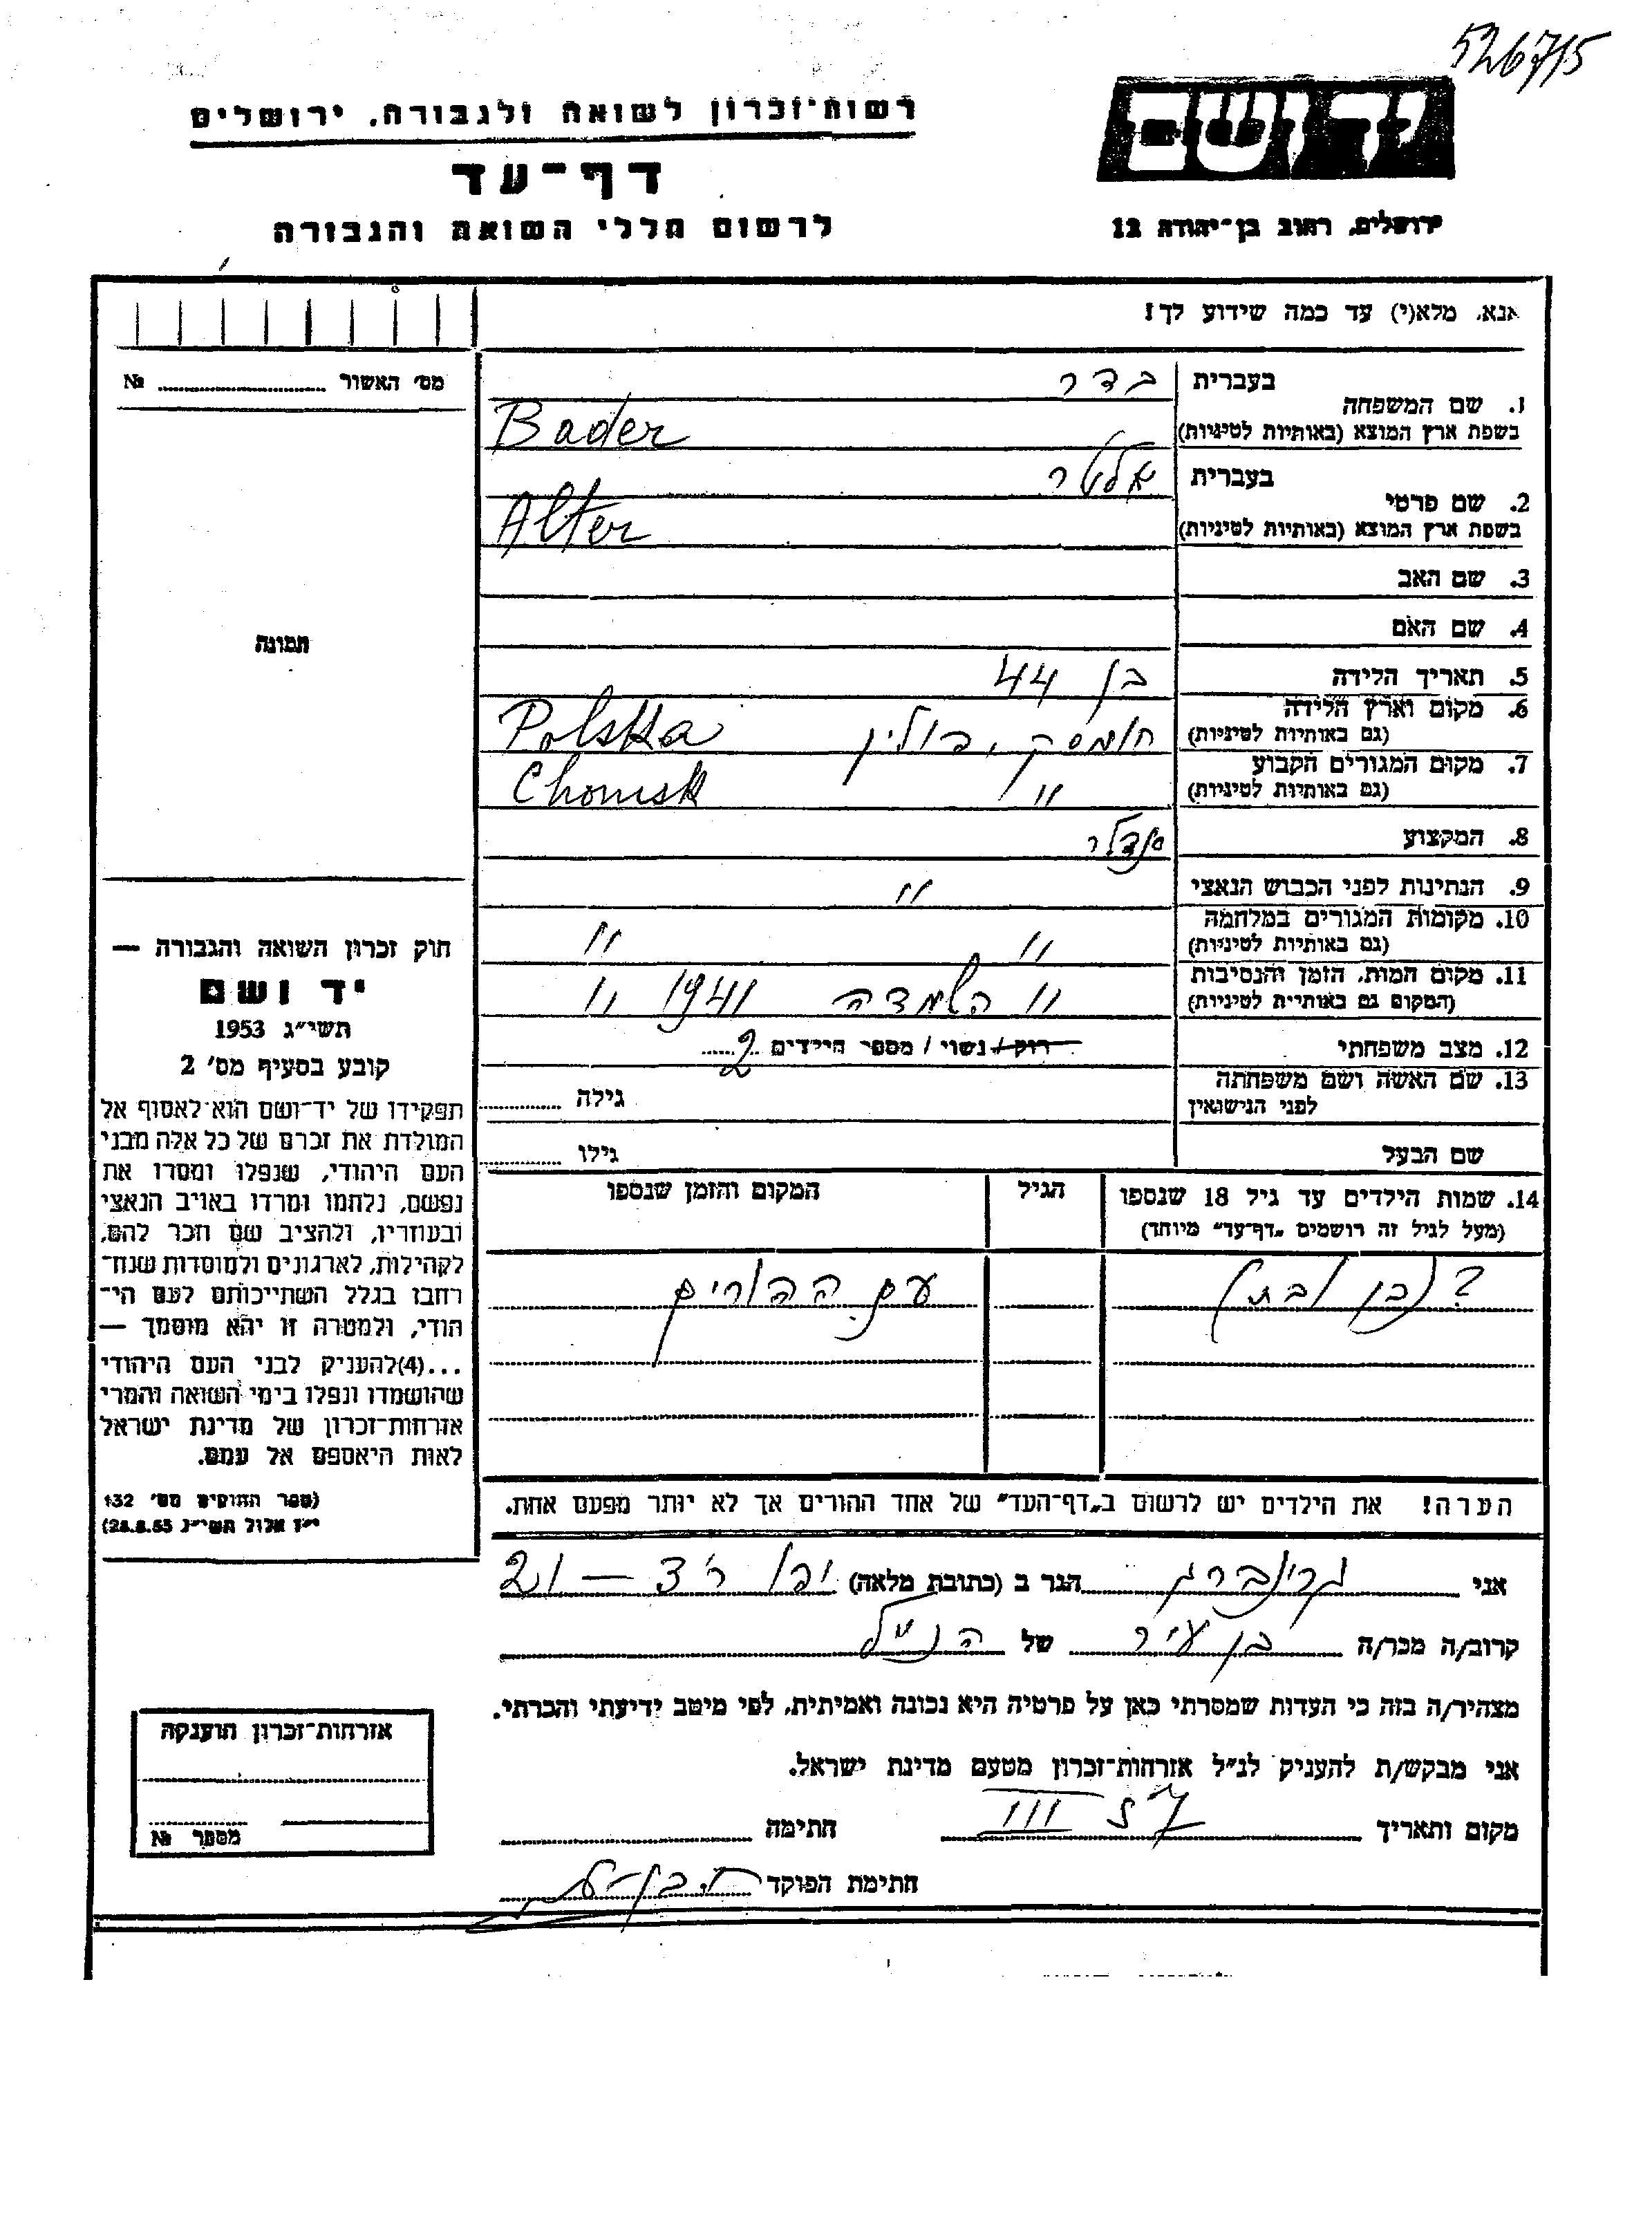 526715
רשות־זכרון לשואה ולגבורה, ירושלים
דף־עד
לרשום חללי השואה והגבורה
יד ושם
ירושלים, רחוב בן־יהודה 12
אנא, מלא(י) עד כמה שידוע לך!
מס' האשור № 
1. שם המשפחה
בעברית בדר
בשפת ארץ המוצא (באותיות לטיניות) Bader
2. שם פרטי
בעברית אלטר
בשפת ארץ המוצא (באותיות לטיניות) Alter
3. שם האב
4. שם האם
תמונה
5. תאריך הלידה בן 44
6. מקום וארץ הלידה (גם באותיות לטיניות) חומסק, פולין Polska
7. מקום המגורים הקבוע (גם באותיות לטיניות) " Chomsk
8. המקצוע
9. הנתינות לפני הכבוש הנאצי "
10. מקומות המגורים במלחמה (גם באותיות לטיניות) " "
11. מקום המות, הזמן והנסיבות (המקום גם באותיות לטיניות) " השמדה 1941 "
12. מצב משפחתי רוק / נשוי / מספר הילדים 2
13. שם האשה ושם משפחתה לפני הנישואין
גילה
שם הבעל
גילו
14. שמות הילדים עד גיל 18 שנספו
(מעל לגיל זה רושמים "דף־עד" מיוחד)
הגיל
המקום והזמן שנספו
? (בן ובת)
עם ההורים
הערה! את הילדים יש לרשום ב"דף־העד" של אחד ההורים אך לא יותר מפעם אחת.
חוק זכרון השואה והגבורה —
יד ושם
תשי"ג 1953
קובע בסעיף מס' 2
תפקידו של יד־ושם הוא לאסוף אל
המולדת את זכרם של כל אלה מבני
העם היהודי, שנפלו ומסרו את
נפשם, נלחמו ומרדו באויב הנאצי
ובעוזריו, ולהציב שם וזכר להם,
לקהילות, לארגונים ולמוסדות שנח־
רחבו בגלל השתייכותם לעם הי־
הודי, ולמטרה זו יהא מוסמך —
...(4)להעניק לבני העם היהודי
שהושמדו ונפלו בימי השואה והמרי
אזרחות־זכרון של מדינת ישראל
לאות היאספם אל עמם.
(ספר החוקים מס' 132
י"ז אלול תשי"ג 28.8.53)
אני גרינברג הגר ב (כתובת מלאה)
קרוב/ה מכר/ה בן עיר של הנ"ל
מצהיר/ה בזה כי העדות שמסרתי כאן על פרטיה היא נכונה ואמיתית, לפי מיטב ידיעתי והכרתי.
אני מבקש/ת להעניק לנ"ל אזרחות־זכרון מטעם מדינת ישראל.
מקום ותאריך III חתימה
חתימת הפוקד
אזרחות־זכרון הוענקה
מספר №